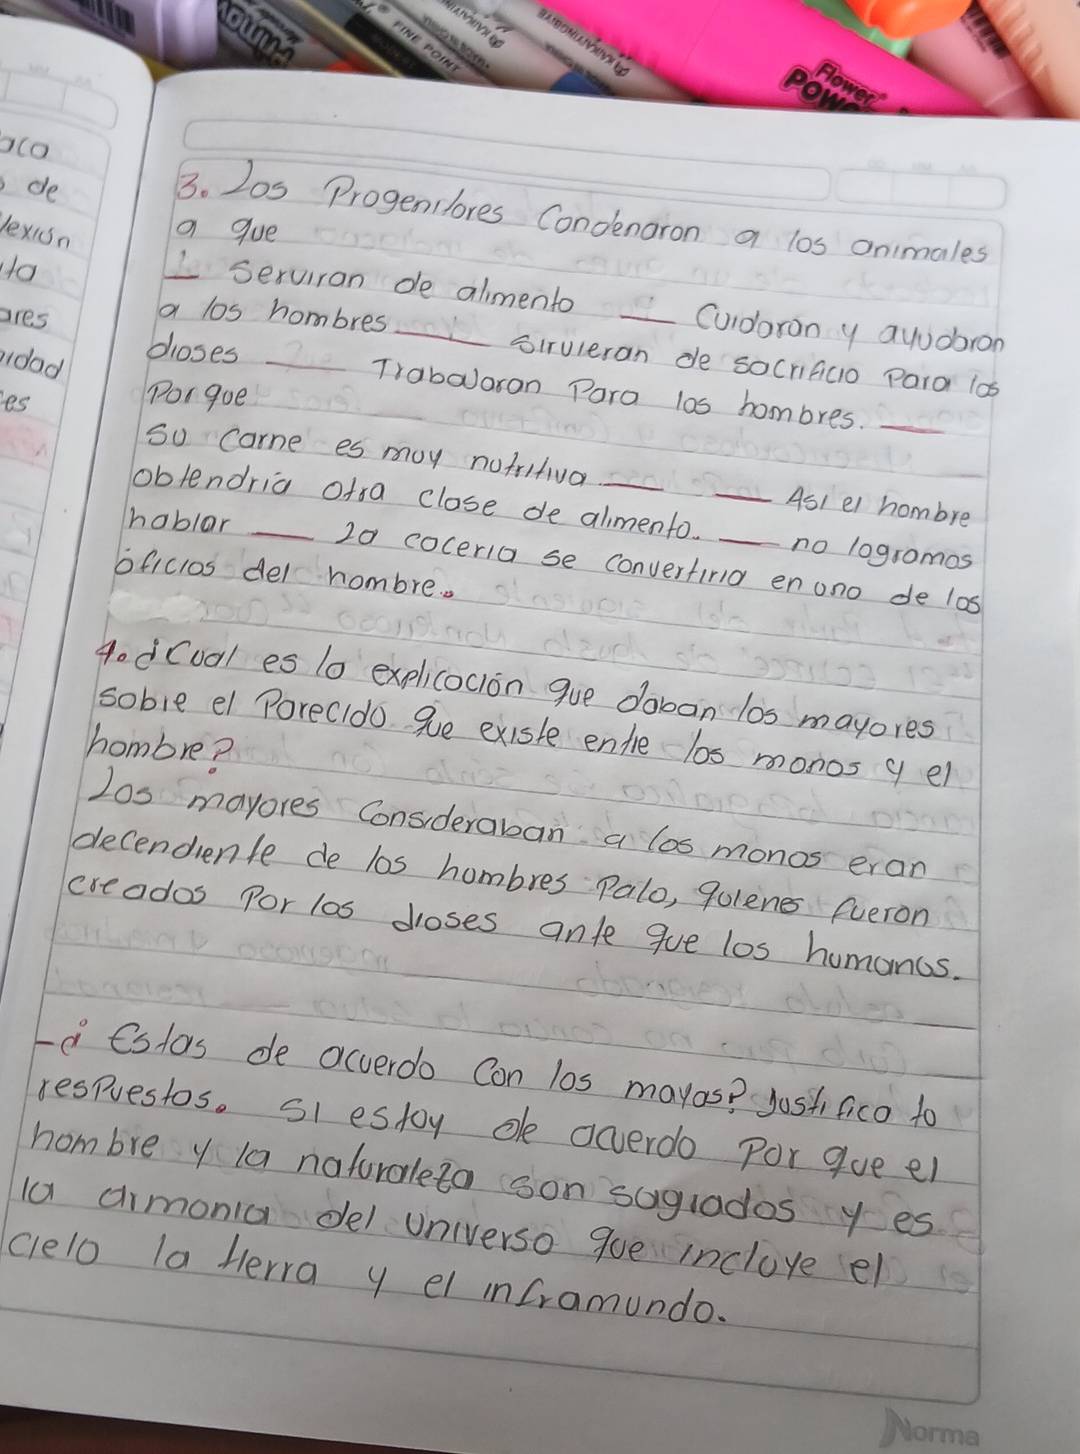 FINE POINT
Flower
POW
aca
de
lexión
ares
idad
es
3. Los Progenitores Condenaron a los animales
a que
1 Serviran de alimento ___ Cuidaran y ayudaran
a los hombres ___ sirvieran de sacrificio Para los
dioses ___ Trabajaran Para los hombres. ___
Porque
su carne es muy nutritiva ___ ___ Así el hombre
obtendría otra clase de alimento. ___ no logramos
hablar ___ la cacería se convertiría en uno de los
oficios del hombre.
4. ¿Cual es la explicación que daban los mayores
sobre el Parecido que existe entre los monos y el
hombre?
Los mayores Consideraban a los monos eran
decendiente de los hombres Palo, quienes fueron
creados Por los dioses ante que los humanos.
- ¿ Estas de acuerdo Con los mayas? Justifica tu
respuestas. Si estoy de acuerdo Por que el
hombre y la naturaleza son sagrados y es
la armonia del universo que incluye el
cielo la tierra y el inframundo.
Norma